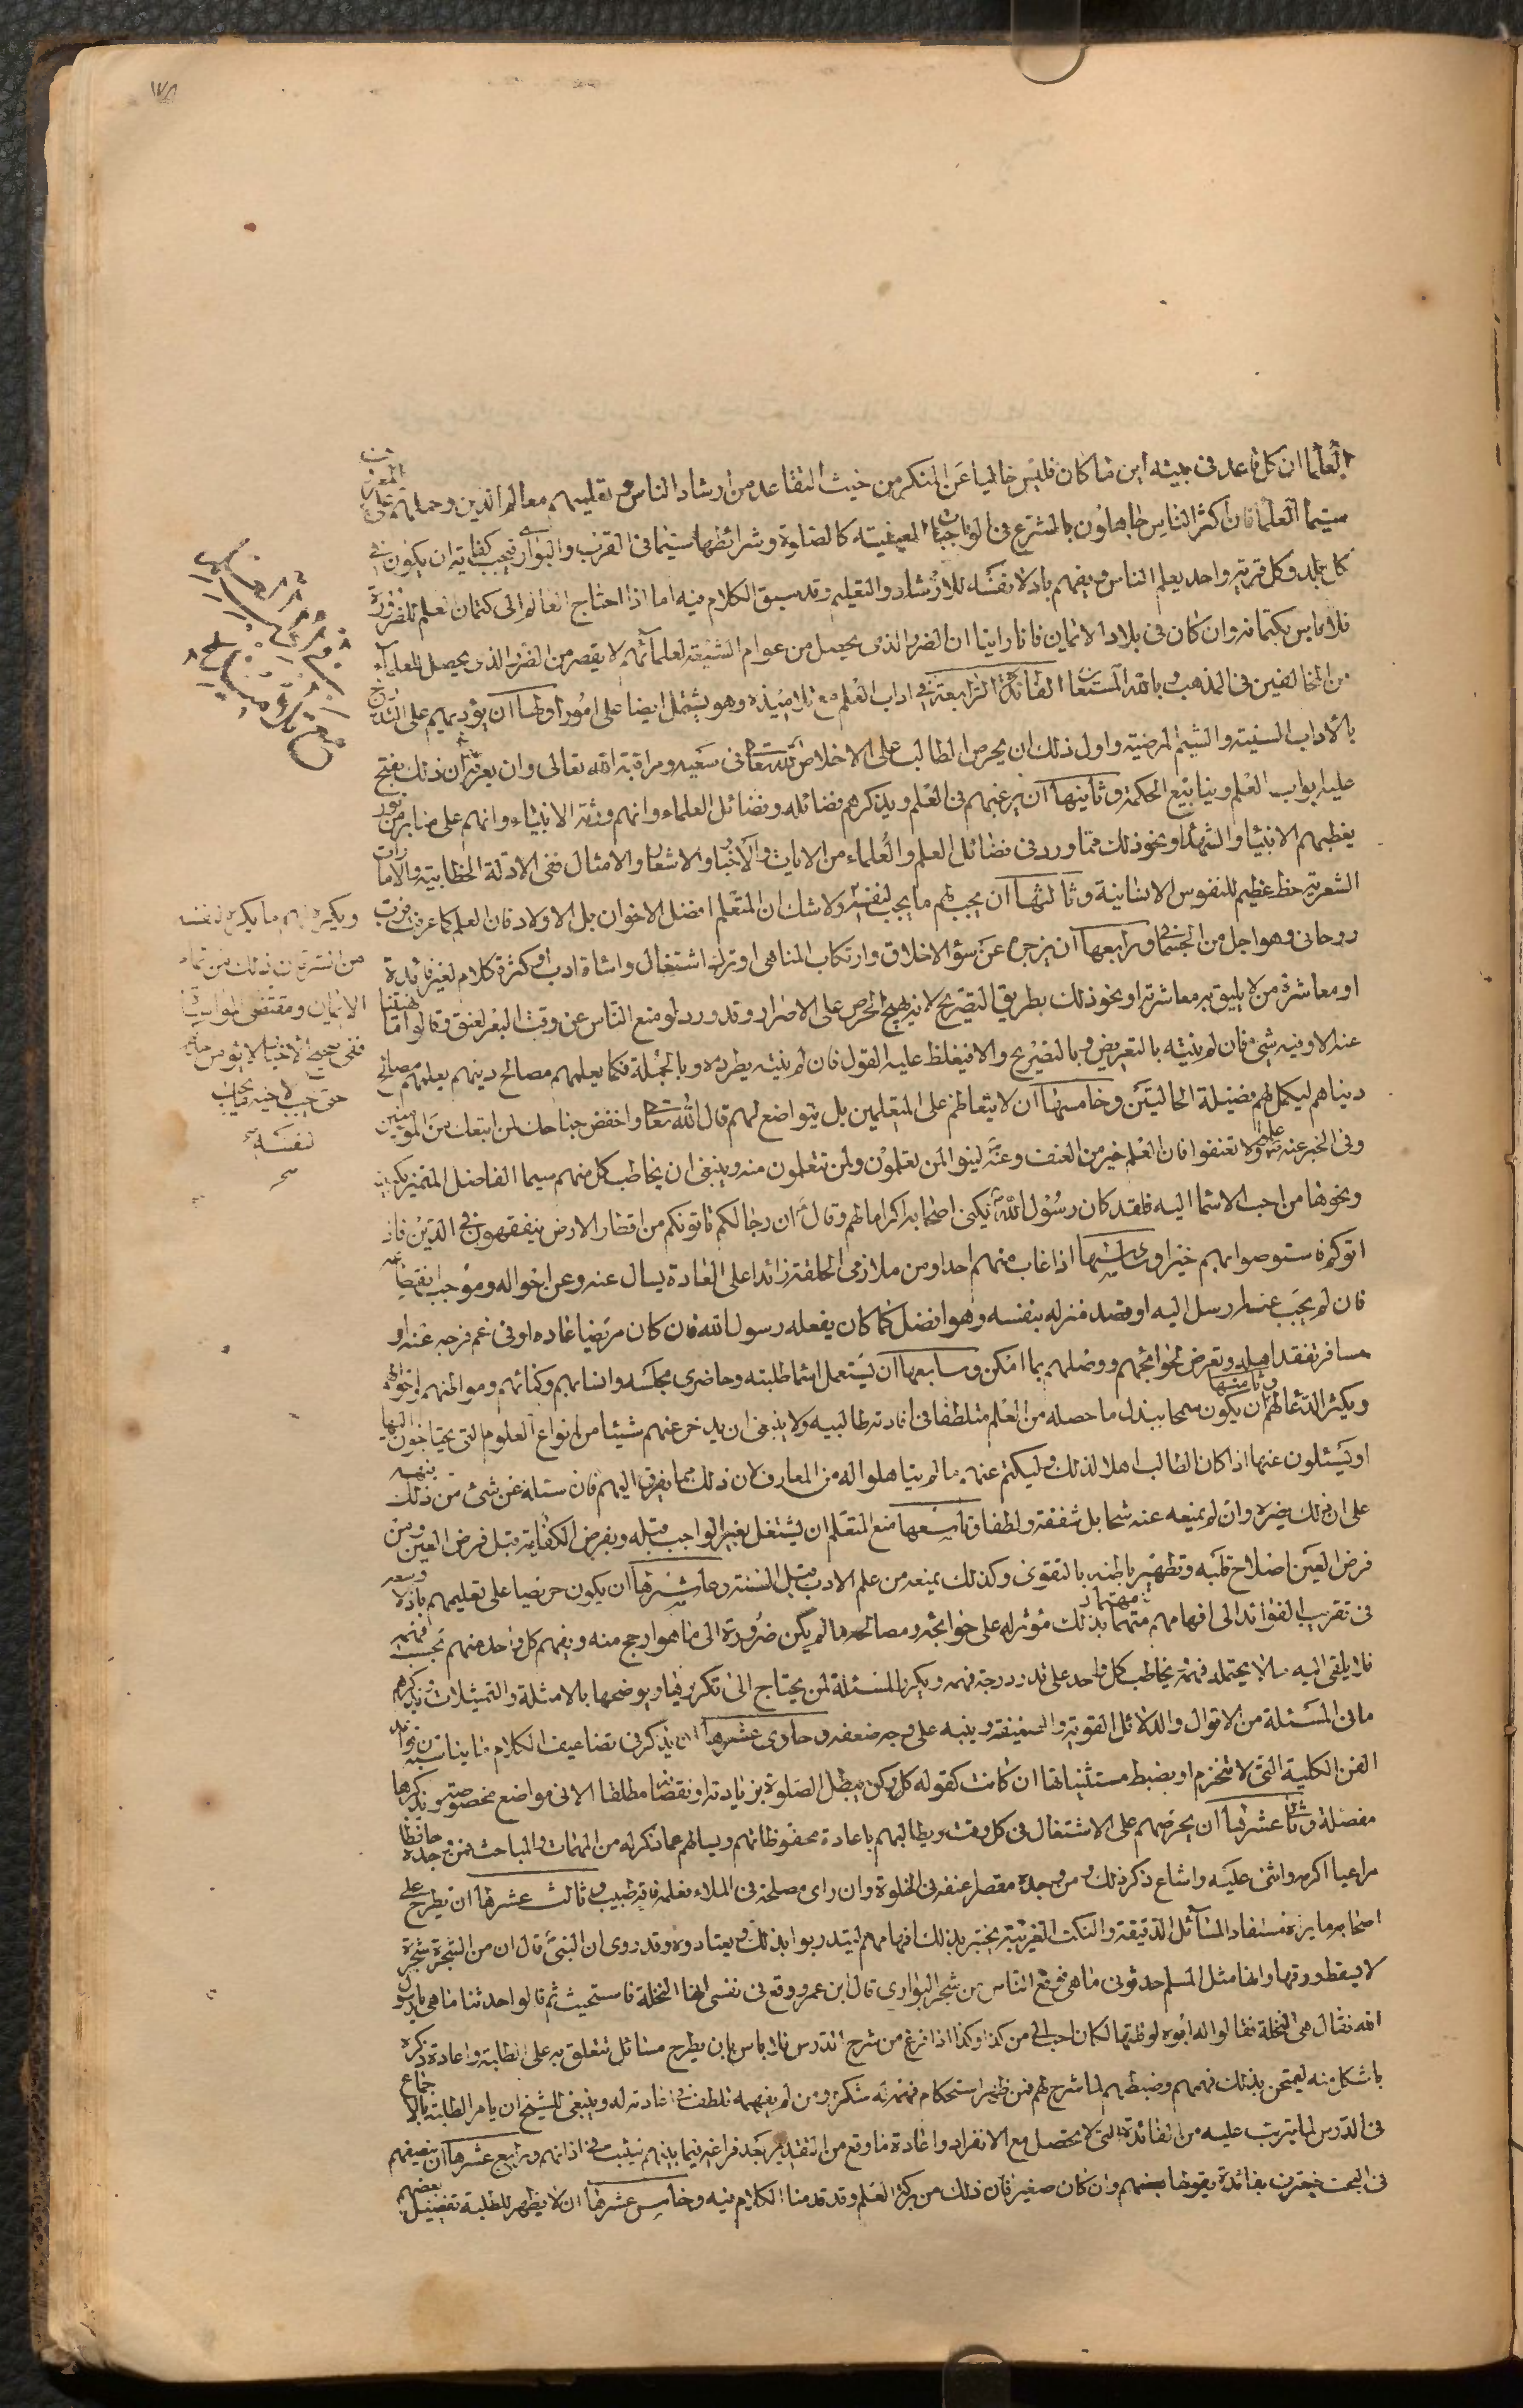 ١٧٨
العلما ان كل قاعد فى بيته اين ما كان فليس خاليا عن المنكر من حيث التقاعد من ارشاد الناس و تعليمهم معالم الدين وحملهم على المعروف
سيما العلما فان اكثر الناس جاهلون بالشرع فى الواجبات العينية كالصلوة وشرائطها سيما فى القرى والبوادى فيجب كفاية ان يكون فى
كل بلد وكل قرية واحد يعلم الناس دينهم باذلا نفسه للارشاد والتعليم وقد سبق الكلام فيه اما اذا احتاج العالم الى كتمان العلم للضرورة
فلا باس بكتمانه وان كان فى بلاد الايمان فانا راينا ان الضرر الذى يحصل من عوام الشيعة لعلمائهم لا يقصر من الضرر الذى يحصل للعلماء
من المخالفين فى المذهب وبالله المستعان الفائدة الرابعة فى اداب العلم مع تلاميذه وهو يشتمل ايضا على امور اولها ان يؤدبهم على التدريج
بالاداب السنية والشيم المرضية واول ذلك ان يحرص الطالب على الاخلاص لله تعالى فى سعيه ومراقبة الله تعالى وان يعرفه ان ذلك يفتح
عليه ابواب العلم وينابيع الحكمة وثانيها ان يرغبهم فى العلم ويذكرهم فضائله وفضائل العلماء وانهم ورثة الانبياء وانهم على منابر من نور
يغبطهم الانبياء والشهداء ونحو ذلك مما ورد فى فضائل العلم والعلماء من الايات والاخبار والاشعار والامثال ففى الادلة الخطابية والامارات
الشعرية حظ عظيم للنفوس الانسانية وثالثها ان يحب لهم ما يحب لنفسه ولا شك ان المتعلم افضل الاخوان بل الاولاد فان العلم كما عرفت قرب
روحانى وهو اجل من الجسمانى ورابعها ان يزجره عن سوء الاخلاق وارتكاب المناهى او ترك اشتغال واساءة ادب او كثرة كلام لغير فائدة
او معاشرة من لا يليق به معاشرته او نحو ذلك بطريق التصريح لانه يهيج الحرص على الاصرار وقد ورد لو منع الناس عن فت البعر لفتوه وقالوا ما نهينا
عنه الا وفيه شىء فان لم ينته بالتعريض وبالتصريح والا فيغلظ عليه القول فان لم ينته يطرده وبالجملة فكما يعلمهم مصالح دينهم يعلمهم مصالح
دنياهم ليكمل لهم فضيلة الحالتين وخامسها ان لا يتعاظم على المتعلمين بل يتواضع لهم قال الله تعالى واخفض جناحك لمن اتبعك من المومنين
وفى الخبر عنه علموا ولا تعنفوا فان العلم خير من العنف وعنه لينوا لمن تعلمون ولمن تتعلمون منه وينبغى ان يخاطب كل منهم سيما الفاضل المتميز بكنيته
ونحوها من احب الاسما اليه فلقد كان رسول الله يكنى اصحابه اكراما لهم وقال ان رجالكم ياتونكم من اقطار الارض يتفقهون فى الدين فاذا
اتوكم فاستوصوا بهم خيرا وسادسها اذا غاب منهم احد او من ملازمى الحلقة زائدا على العادة يسال عنه وعن احواله وموجب انقطاعه
فان لم يجب عنه ارسل اليه او قصد منزله بنفسه وهو افضل كما كان يفعله رسول الله فان كان مريضا عاده او فى غم فرجه عنه او
مسافر تفقد اهله وتعرض لحوائجهم ووصلهم بما امكن وسابعها ان يستعمل اسما طلبته وحاضرى مجلسه وانسابهم وكنائهم ومواطنهم واحوالهم
ويكثر الدعا لهم وثامنها ان يكون سمحا ببذل ما حصله من العلم متلطفا فى افادته طالبيه ولا ينبغى ان يدخر عنهم شيئا من انواع العلوم التى يحتاجون اليها
او يسئلون عنها اذا كان الطالب اهلا لذلك وليكتم عنهم ما لم يتاهلوا له من المعارف لان ذلك مما يفرق الهم فان سئله عن شىء من ذلك ينبهه
على ان ذلك يضره وان لم يمنعه عنه شحا بل شفقة ولطفا وتاسعها منع المتعلم ان يشتغل بغير الواجب قبله وبفرض الكفاية قبل فرض العين ومن
فرض العين اصلاح قلبه وتطهير باطنه بالتقوى وكذلك يمنعه من علم الادب قبل السنة وعاشرها ان يكون حريصا على تعليمهم باذلا وسعه
فى تقريب الفوائد الى افهامهم مهتما بذلك مؤثرا له على حوائجه ومصالحه ما لم يكن ضرورة الى ما هو ارجح منه ويفهم كل واحد منهم بحسب فهمه
فلا يلقى اليه ما لا يحتمله فهمه يخاطب كل واحد على قدر درجة فهمه ويكرر المسئلة لمن يحتاج الى تكريرها ويوضحها بالامثلة والتمثيلات ويذكرهم
ما فى المسئلة من الاقوال والدلائل القوية والضعيفة وينبه على وجه ضعفه وحادى عشرها ان يذكر فى تضاعيف الكلام ما يناسبه من قواعد
الفن الكلية التى لا تنخرم او يضبط مستثنياتها ان كانت كقوله كل ركن يبطل الصلوة بزيادته او نقصه مطلقا الا فى مواضع مخصوصة ويذكرها
مفصلة وثانى عشرها ان يحرضهم على الاشتغال فى كل وقت ويطالبهم باعادة محفوظاتهم ويسالهم عما ذكر لهم من المهمات والمباحث فمن وجده حافظا
مراعيا اكرمه واثنى عليه واشاع ذكر ذلك ومن وجده مقصرا عنفه فى الخلوة وان راى مصلحة فى الملاء فعله فانه طبيب وثالث عشرها ان يطرح على
اصحابه ما يراه من مستفاد المسائل الدقيقة والنكت الغريبة يختبر بذلك افهامهم ليتدربوا بذلك ويعتادوه وقد روى ان النبى قال ان من الشجرة شجرة
لا يسقط ورقها وانها مثل المسلم حدثونى ما هى فوقع الناس من شجر البوادى قال ابن عمر ووقع فى نفسى انها النخلة فاستحييت ثم قالوا حدثنا ما هى يا رسول
الله فقال هى النخلة فقالوا له ابوه لو قلتها لكان احب الى من كذا وكذا اذا فرغ من شرح الدرس فلا باس بان يطرح مسائل تتعلق به على الطلبة واعادة ذكره
ما اشكل منه ليمتحن بذلك فهمهم وضبطهم لما شرح لهم فمن ظهر استحكام فهمه له شكره ومن لم يفهمه تلطف فى اعادته له وينبغى للشيخ ان يامر الطلبة بالاجتماع
فى الدرس لما يترتب عليه من الفائدة التى لا تحصل مع الانفراد واعادة ما وقع من التقرير بعد فراغه فيما بينهم ليثبت فى اذهانهم ورابع عشرها ان ينصفهم
فى البحث فيعترف بفائدة يقولها بعضهم وان كان صغيرا فان ذلك من بركة العلم وقد قدمنا الكلام فيه وخامس عشرها ان لا يظهر للطلبة تفضيل بعضهم
ويكره لهم ما يكره لنفسه
من الشر فان ذلك من تمام
الايمان ومقتضى المواساة
ففى صحيح الاخبار لا يؤمن احدكم
حتى يحب لاخيه ما يحب
لنفسه
صح